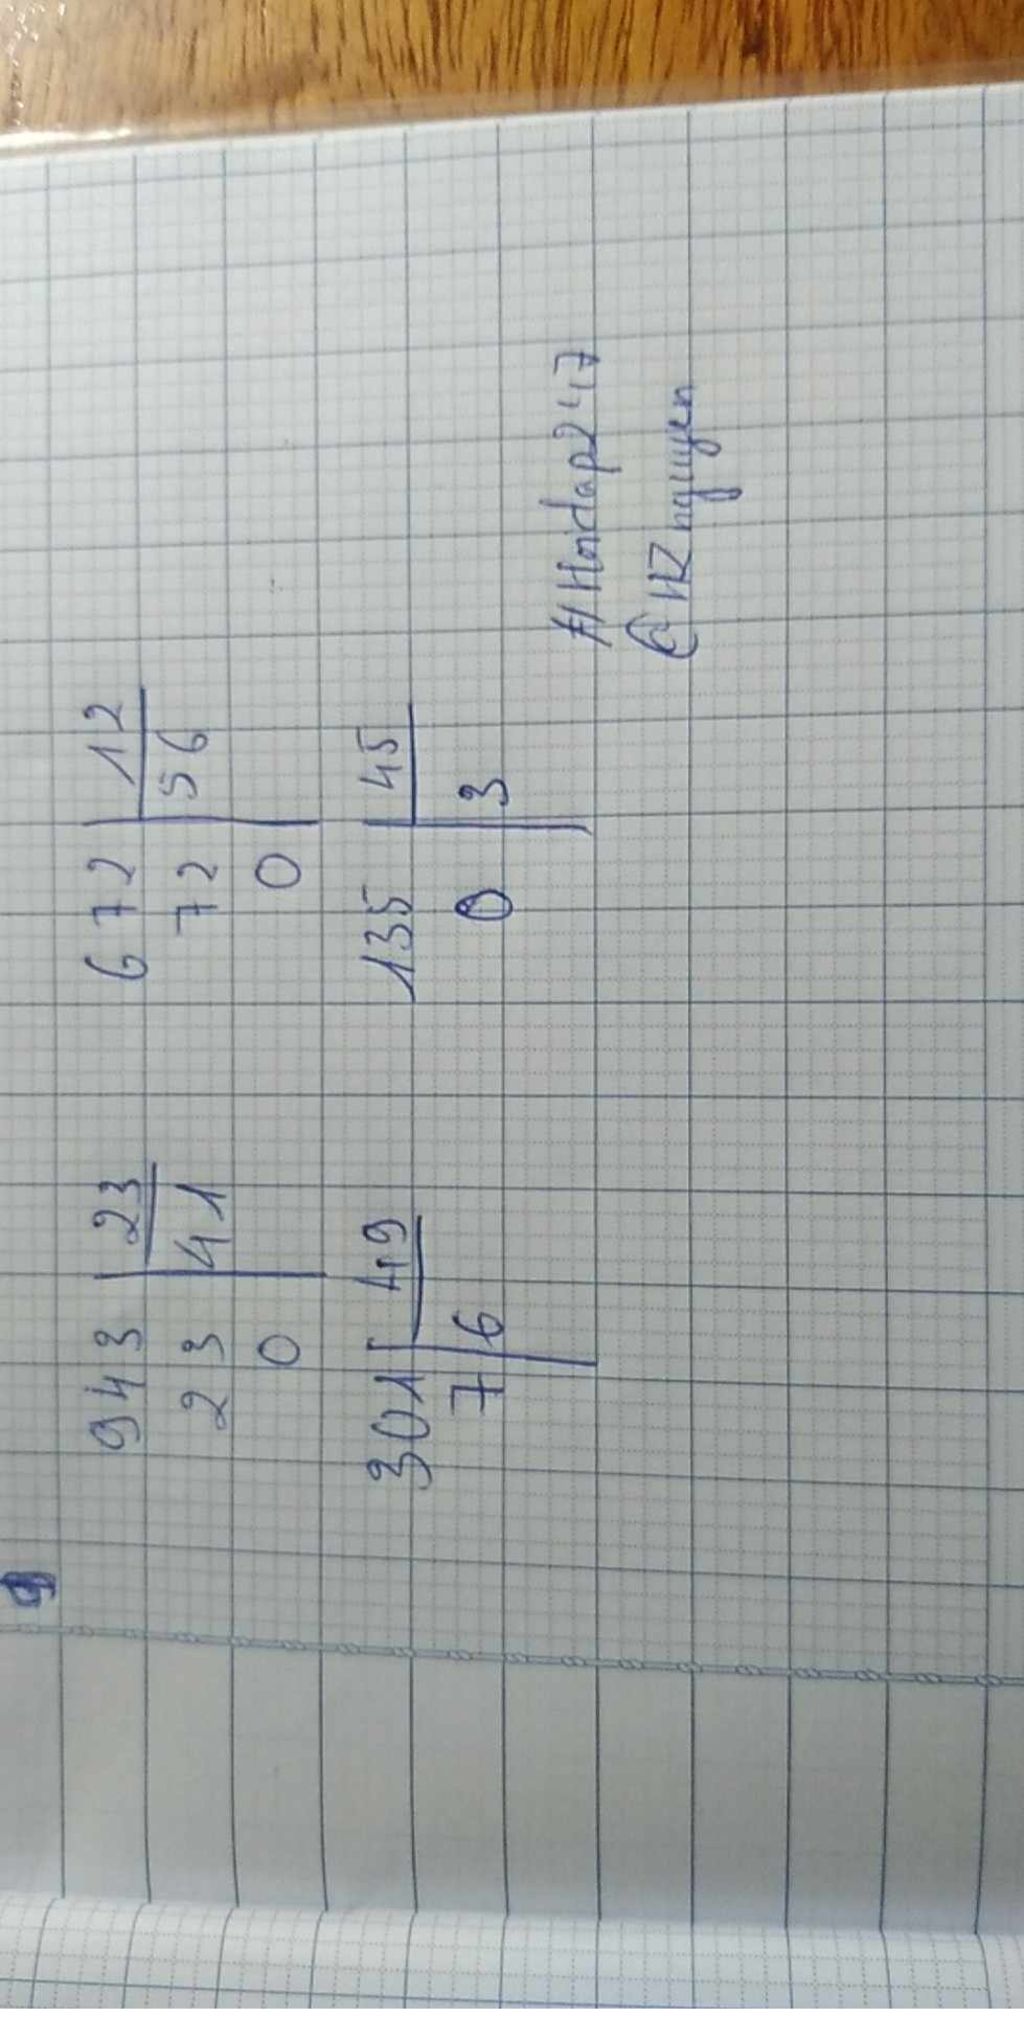 943 | 23 672 | 12
23 | 41 72 | 56
0 0
301 | 49 135 | 45
7 | 6 0 | 3
#Hoidap247
@HZnguyen